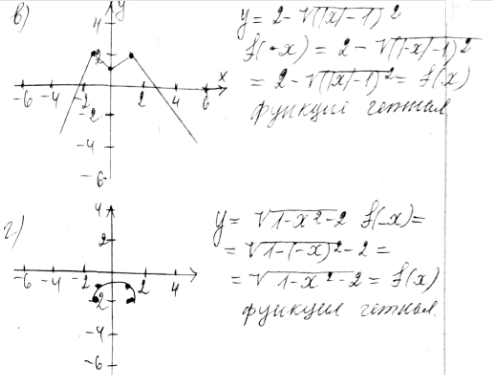 в)
y
4
2
x
-6 -4 -2 2 4 6
-2
-4
-6
y = 2 - √(|x| - 1)²
f(-x) = 2 - √(|-x| - 1)²
= 2 - √(|x| - 1)² = f(x)
функция четная
г)
4
2
-6 -4 -2 2 4
2
-4
-6
y = √1-x² - 2 f(-x) =
= √1-(-x)² - 2 =
= √1-x² - 2 = f(x)
функция четная.